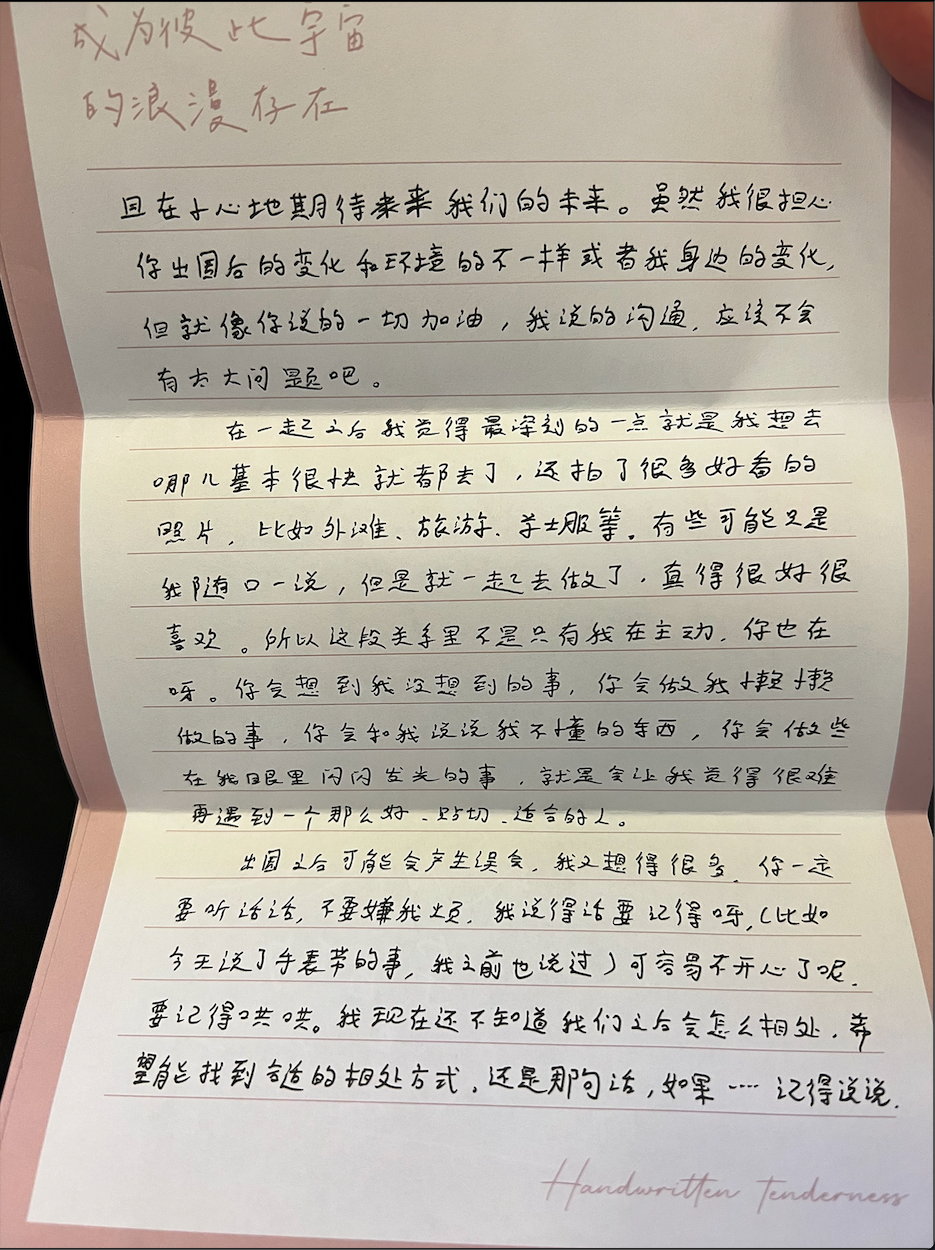 成为彼此宇宙
的浪漫存在
且在小心地期待未来我们的未来。虽然我很担心
你出国后的变化和环境的不一样或者我身边的变化,
但就像你说的一切加油,我说的沟通,应该不会
有太大问题吧。
在一起之后我觉得最深刻的一点就是我想去
哪儿基本很快就都去了,还拍了很多好看的
照片,比如外滩、旅游、学士服等。有些可能只是
我随口一说,但是就一起去做了,真得很好很
喜欢。所以这段关系里不是只有我在主动,你也在
呀。你会想到我没想到的事,你会做我懒懒
做的事,你会和我说说我不懂的东西,你会做些
在我眼里闪闪发光的事,就是会让我觉得很难
再遇到一个那么好、贴切、适合的人。
出国之后可能会产生误会,我又想得很多,你一定
要听话话,不要嫌我烦,我说得话要记得呀,(比如
今天说了手表带的事,我之前也说过)可容易不开心了呢,
要记得哄哄。我现在还不知道我们之后会怎么相处,希
望能找到合适的相处方式,还是那句话,如果……记得说说.
Handwritten tenderness